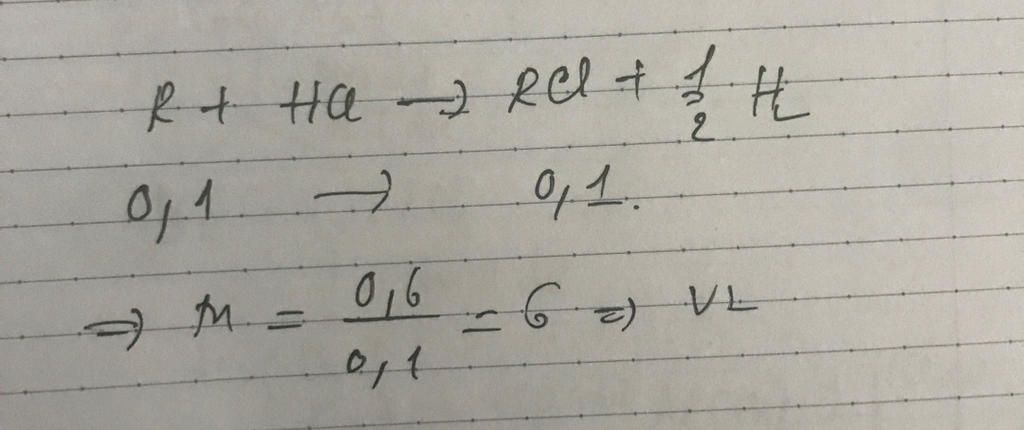 R + HCl → RCl + 1/2 H2
0,1 → 0,1.
⇒ M = 0,6/0,1 = 6 ⇒ VL